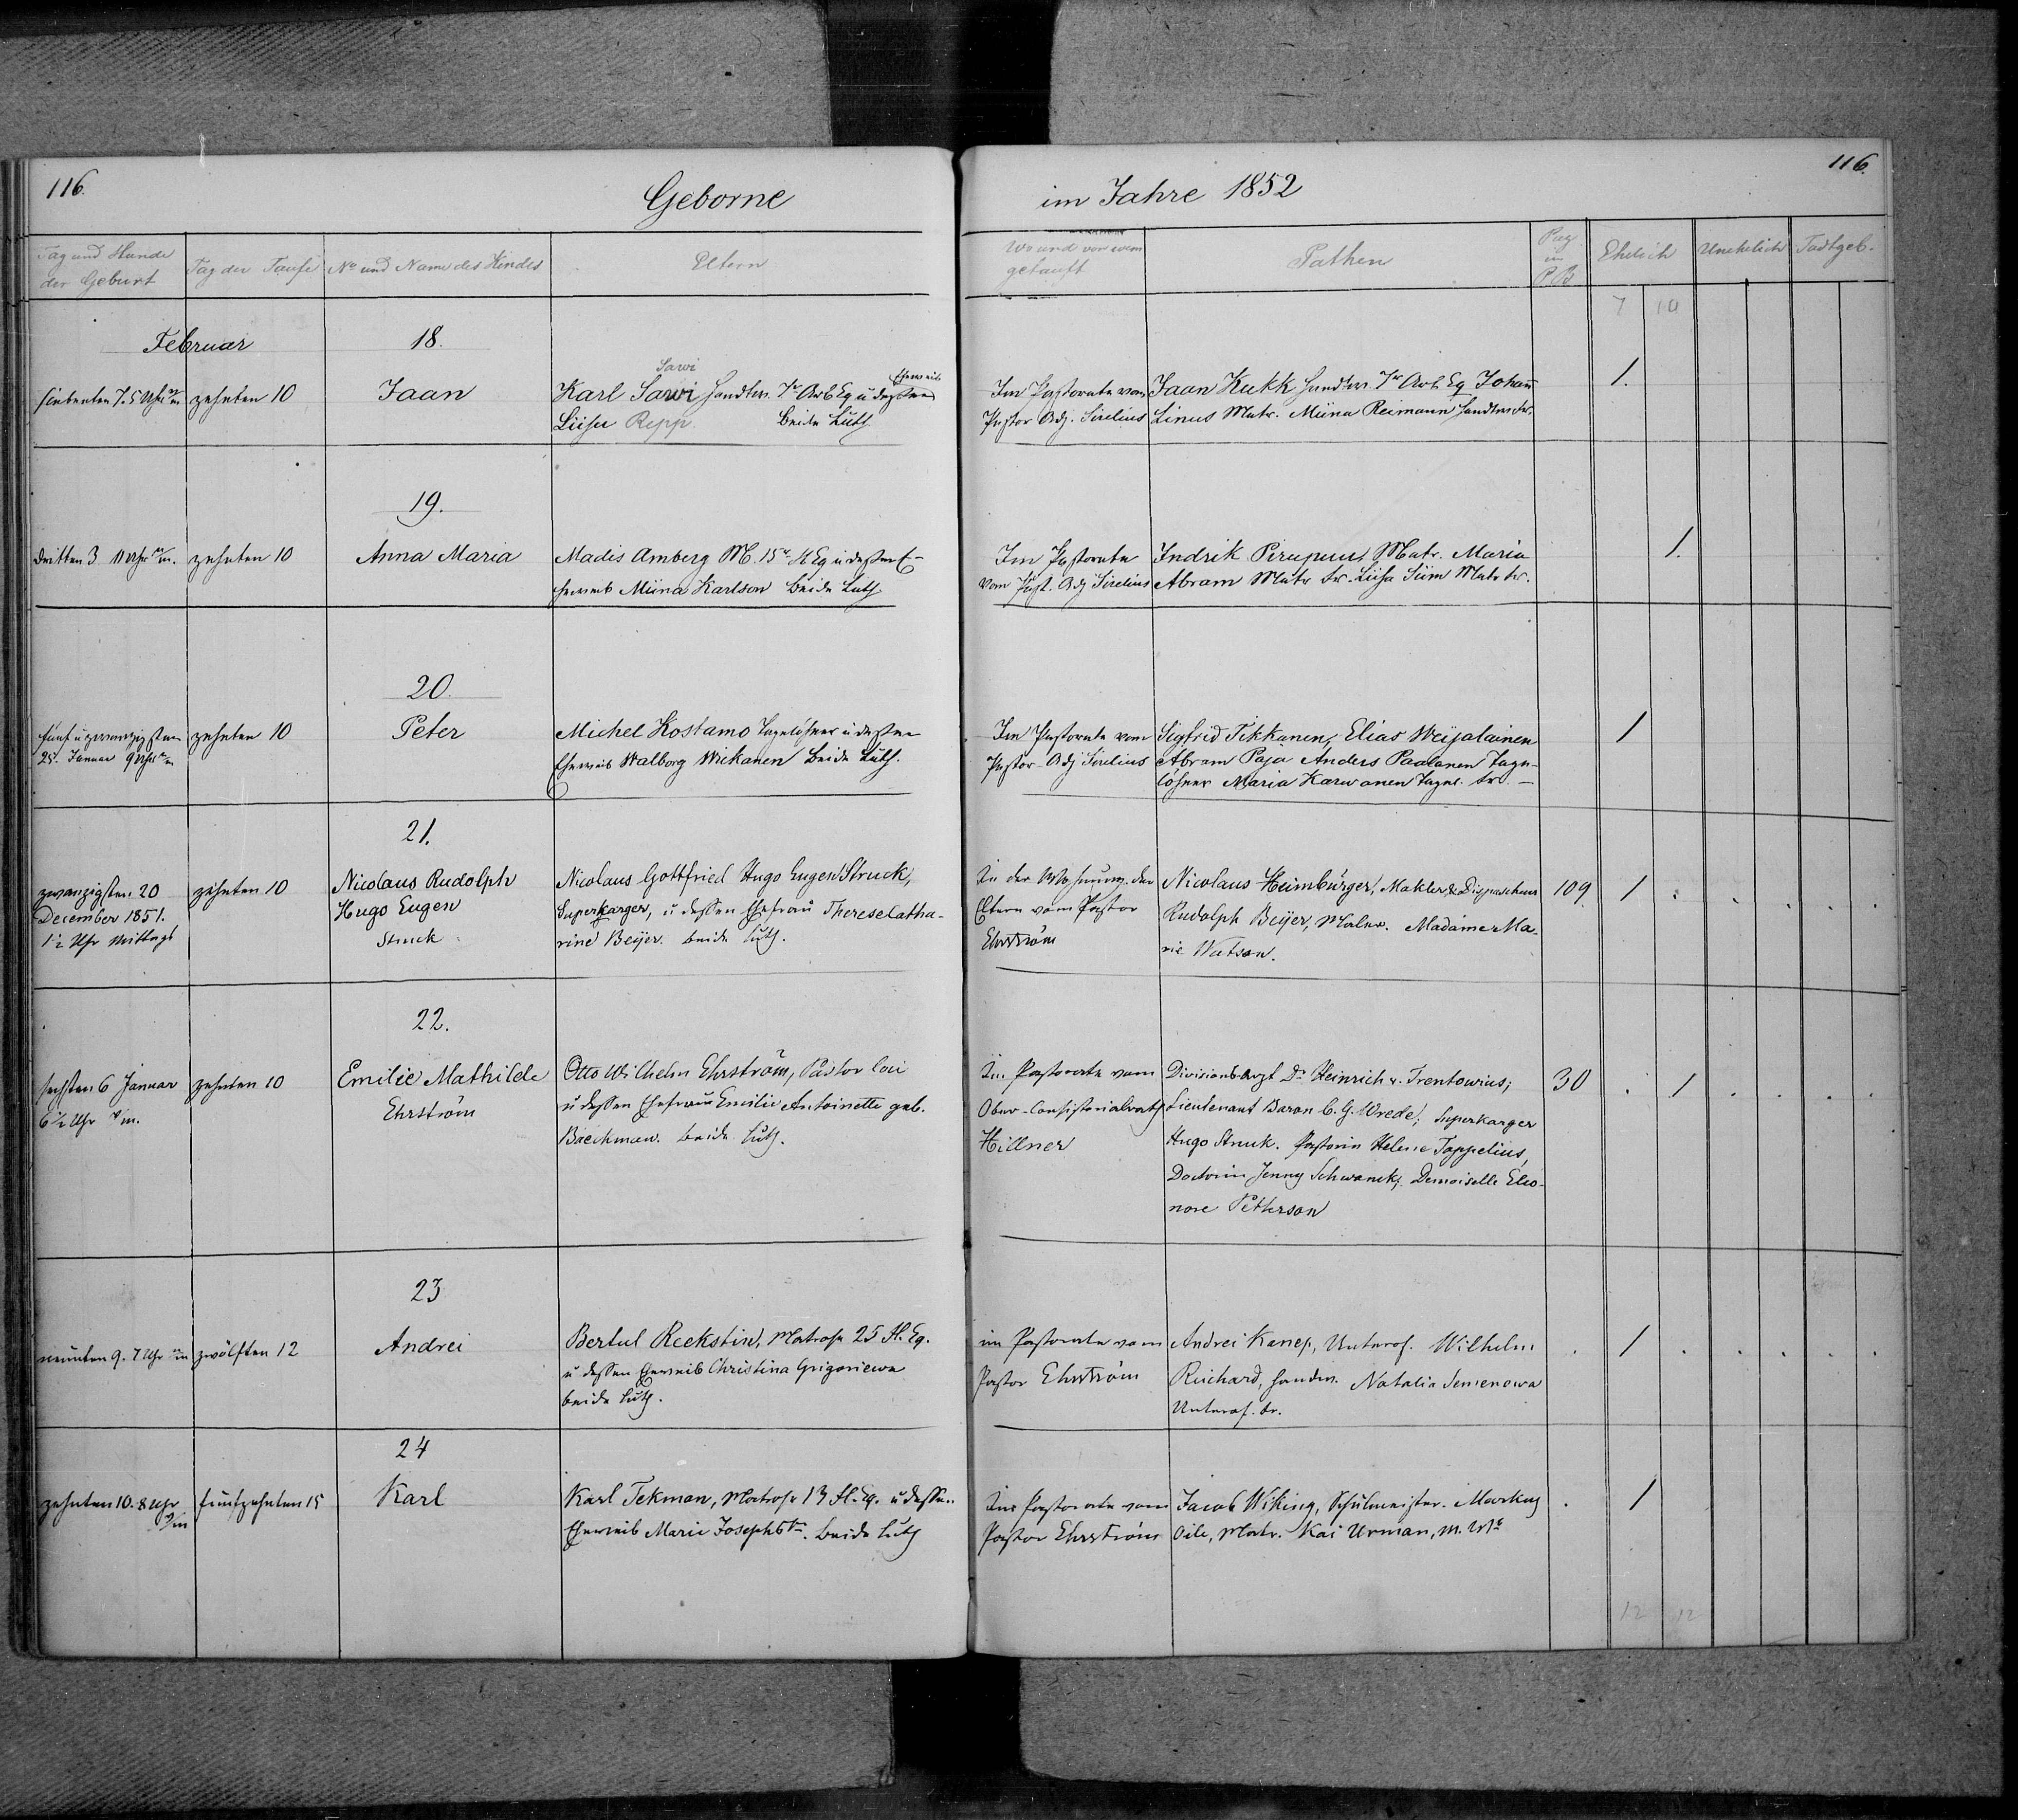 116.
Geborne
im Jahre 1852
116.
Tag und Stunde der Geburt
Tag der Taufe
No und Name des Kindes
Eltern
Wo und von wem getauft
Pathen
Pag. im P.B
Ehelich
Unehelich
Todtgeb.
7 10
Februar
18.
siebenten 7. 5 Uhr
zehnten 10
Jaan
Sawi
Karl Sawi Handlan. 7r Arb Eq u dessen Eheweib
Liisu Repp. Beide Luth
Im Pastorate vom
Pastor Adj. Sirelius
Jaan Kukk Handlan. 7r Arb Eq Johann
Linus Matr. Miina Reimann Handlan. Fr.
1.
19.
dritten 3 11 Uhr
zehnten 10
Anna Maria
Madis Amberg M. 15r Fl Eq u dessen E-
heweib Miina Karlson Beide Luth
Im Pastorate
vom Past. Adj Sirelius
Indrik Matr. Maria
Abram Matr Fr. Liisa Siim Matr Fr.
1.
20.
fünf u zwanzigsten
25. Januar 9 Uhr
zehnten 10
Peter
Michel Kostamo Tagelöhner u dessen
Eheweib Walborg Wickanen Beide Luth.
Im Pastorate vom
Pastor-Adj Sirelius
Sigfrid Tikkanen, Elias Weijalainen
Abram Paja Anders Paalanen Tage-
löhner Maria Karwonen Tagel. Fr. –
1
21.
zwanzigsten 20
December 1851.
1½ Uhr Mittags
zehnten 10
Nicolaus Rudolph
Hugo Eugen
Struck
Nicolaus Gottfried Hugo Eugen Struck,
Superkarger, u dessen Ehefrau Therese Catha-
rine Beijer. beide luth.
In der Wohnung der
Eltern vom Pastor
Ehrström
Nicolaus Heimbürger, Makler & Dispacheur
Rudolph Beijer, Maler. Madame Ma-
rie Watson.
109
1
22.
sechsten 6 Januar
6½ Uhr
zehnten 10
Emilie Mathilde
Ehrström
Otto Wilhelm Ehrström, Pastor loci
u dessen Ehefrau Emilie Antoinette geb.
Baeckman. beide luth.
Im Pastorate vom
Ober-Consistorialrath
Hillner
Divisionsarzt Dr Heinrich v. Trentowius;
Lieutenant Baron C. G. Wrede; Superkarger
Hugo Struck. Pastorin Helene Toppelius,
Doctorin Jenny Schwanck, Demoiselle Eleo-
nore Petterson
30
1
23
neunten 9. 7 Uhr
zwölften 12
Andrei
Bertul Reekstin, Matrose 25 Fl. Eq.
u dessen Eheweib Christina Grigoriewa
beide luth.
im Pastorate vom
Pastor Ehrström
Andrei Kanep, Unterof. Wilhelm
Reichard, Handw. Natalia Semenowa
Unterof. Fr.
1
24
zehnten 10. 8 Uhr
fünfzehnten 15
Karl
Karl Tekman, Matrose 13 Fl. Eq. u dessen
Eheweib Marie Josephstr. beide luth
Im Pastorate vom
Pastor Ehrström
Jacob Wiking, Schulmeister. Markus
Oile, Matr. Kai Urman, M. We
1
12 12